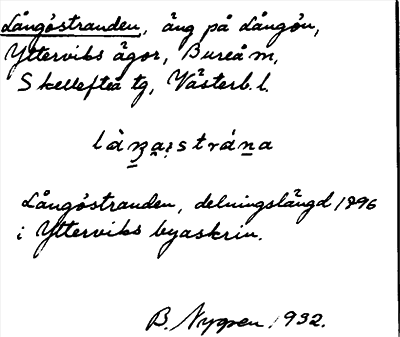 Långöstranden, äng på Långön,
Ytterviks ägor, Bureå m,
Skellefteå tg, Västerb. l.
Långöstranden, delningslängd 1896
i Ytterviks byaskrin.
B. Nygren 1932.